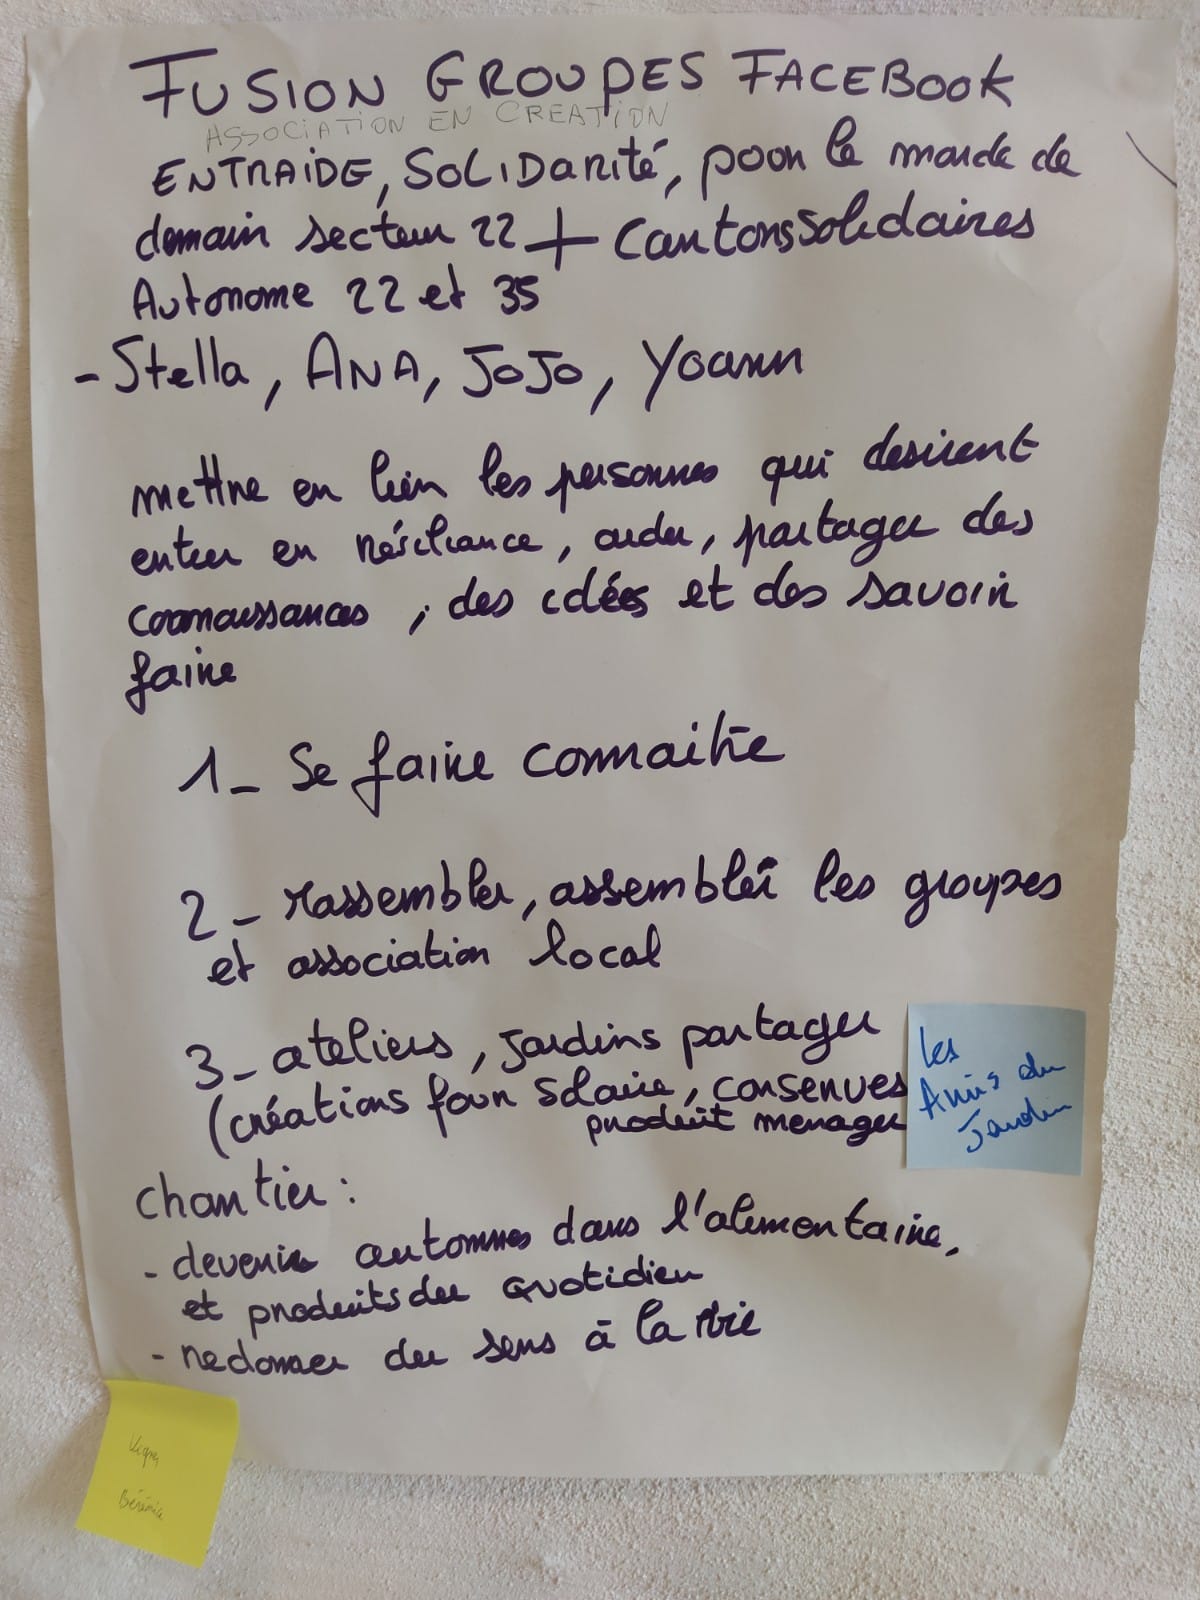 FUSION GROUPES FACEBOOK
ASSOCIATION EN CREATION
ENTRAIDE, SOLIDARITÉ, pour le monde de
demain secteur 22 + Cantons solidaires
Autonome 22 et 35
- Stella, ANA, JOJO, Yoann
mettre en lien les personnes qui desirent
entrer en résiliance, aider, partager des
connaissances, des idées et des savoir
faire
1_ Se faire connaitre
2_ rassembler, assembler les groupes
et association local
3_ ateliers, jardins partager
(créations four solaire, conserves
produit menager
les
Amis du
Jardin
Chantier :
- devenir autonomes dans l'alimentaire,
et produits du quotidien
- redonner du sens à la vie
Bérénice